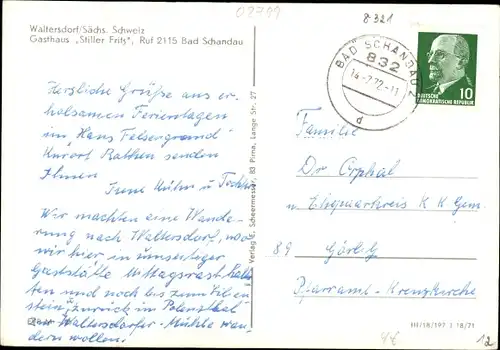 Waltersdorf/Sächs. Schweiz
Gasthaus „Stiller Fritz", Ruf 2115 Bad Schandau
8321
BAD SCHANDAU 2
832
14.-7.72.-11
d
DEUTSCHE
DEMOKRATISCHE REPUBLIK
10
Herzliche Grüße aus er-
holsamen Ferientagen
im Haus Felsengrund
Kurort Rathen senden
Ihnen
Irene u Tochter
Wir machten eine Wande-
rung nach Waltersdorf, wo
wir hier in
Gaststätte Mittagsrast
ten und noch bis zum Lilien-
stein, zurück im Polenztal
Waltersdorfer-Mühle wan-
dern wollen.
Verlag E. Scheermesser, 83 Pirna, Lange Str. 27
Familie
Dr Orphal
u. K K Gem.
89 Görlitz
Pfarramt-Kreuzkirche
III/18/197 J 18/71
4€
12